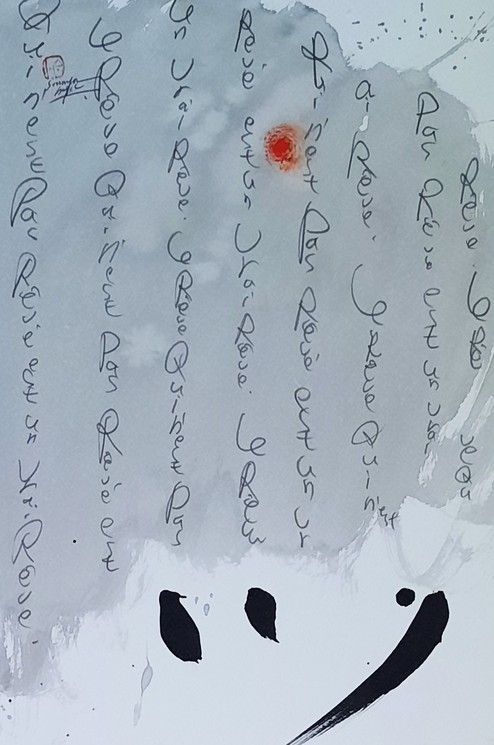 Qui n'est Pas Rêvé est un vrai Rêve.
Le Rêve Qui n'est Pas Rêvé est
un vrai Rêve. Le Rêve Qui n'est Pas
Rêvé est un vrai Rêve. Le Rêve
Qui n'est Pas Rêvé est un vr
ai Rêve. Le Rêve Qui n'est
Pas Rêvé est un vrai
Rêve. Le Rê